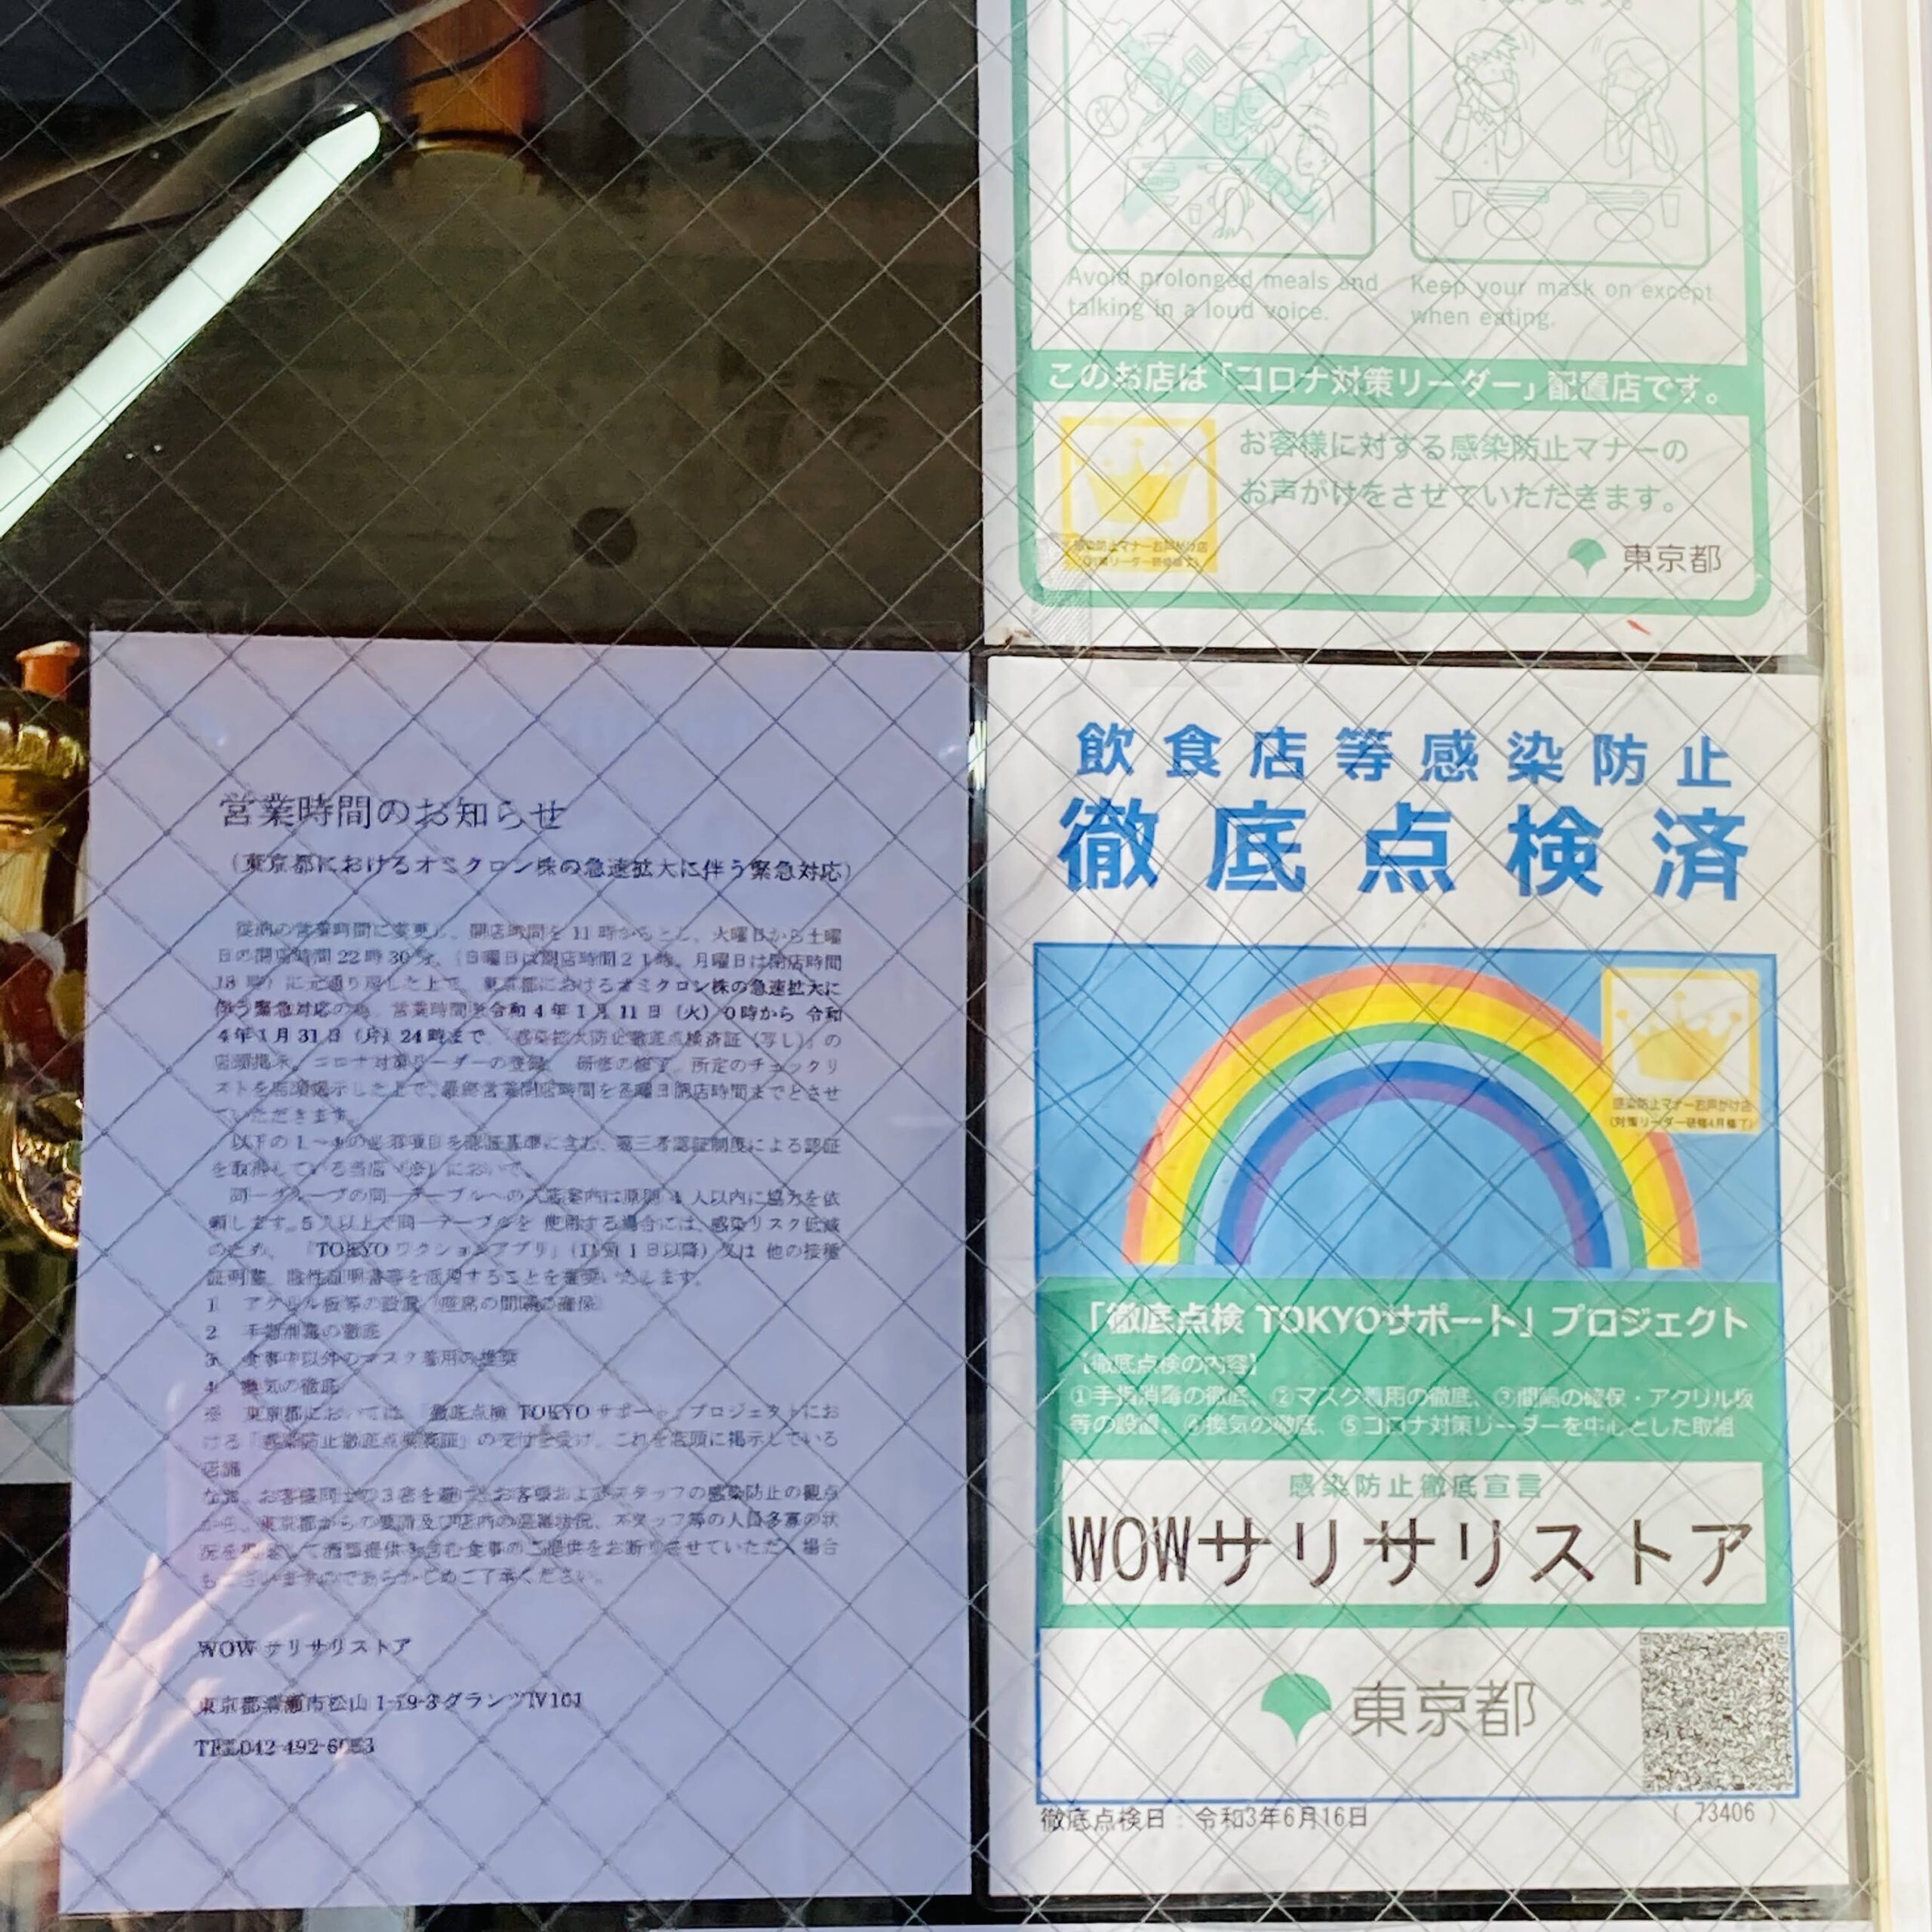 営業時間のお知らせ
（東京都におけるオミクロン株の急速拡大に伴う緊急対応）
従前の営業時間に変更し、開店時間を11時からとし、火曜日から土曜
日の閉店時間22時30分、（日曜日は閉店時間21時、月曜日は閉店時間
18時）に元通り戻した上で、東京都におけるオミクロン株の急速拡大に
伴う緊急対応の為、営業時間を令和4年1月11日（火）0時から 令和
4年1月31日（月）24時まで、「感染拡大防止徹底点検済証（写し）」の
店頭掲示、コロナ対策リーダーの登録、研修の修了、所定のチェックリ
ストを店頭掲示した上で、最終営業閉店時間を各曜日閉店時間までとさせ
ていただきます。
以下の1～4の必須項目を認証基準に含む、第三者認証制度による認証
を取得している当店（※）において、
同一グループの同一テーブルへの入店案内は原則4人以内に協力を依
頼します。5人以上で同一テーブルを 使用する場合には、感染リスク低減
のため、「TOKYOワクションアプリ」（11月1日以降）又は 他の接種
証明書、陰性証明書等を活用することを推奨いたします。
1 アクリル板等の設置（座席の間隔の確保）
2 手指消毒の徹底
3 食事中以外のマスク着用の推奨
4 換気の徹底
※ 東京都においては「徹底点検 TOKYOサポート」プロジェクトにお
ける「感染防止徹底点検済証」の交付を受け、これを店頭に掲示している
店舗
なお、お客様同士の3密を避け、お客様およびスタッフの感染防止の観点
から、東京都からの要請及び店内の混雑状況、スタッフ等の人員多寡の状
況を勘案して酒類提供を含む食事のご提供をお断りさせていただく場合
もございますのであらかじめご了承ください。
WOWサリサリストア
東京都清瀬市松山1-19-3グランツⅣ101
TEL042-492-6
Avoid prolonged meals and
talking in a loud voice.
Keep your mask on except
when eating.
このお店は「コロナ対策リーダー」配置店です。
お客様に対する感染防止マナーの
お声がけをさせていただきます。
感染防止マナーお声がけ店
東京都
飲食店等感染防止
徹底点検済
感染防止マナーお声がけ店
（対策リーダー研修4月修了）
「徹底点検 TOKYOサポート」プロジェクト
【徹底点検の内容】
①手指消毒の徹底、②マスク着用の徹底、③間隔の確保・アクリル板
等の設置、④換気の徹底、⑤コロナ対策リーダーを中心とした取組
感染防止徹底宣言
WOWサリサリストア
東京都
徹底点検日：令和3年6月16日
（ 73406 ）